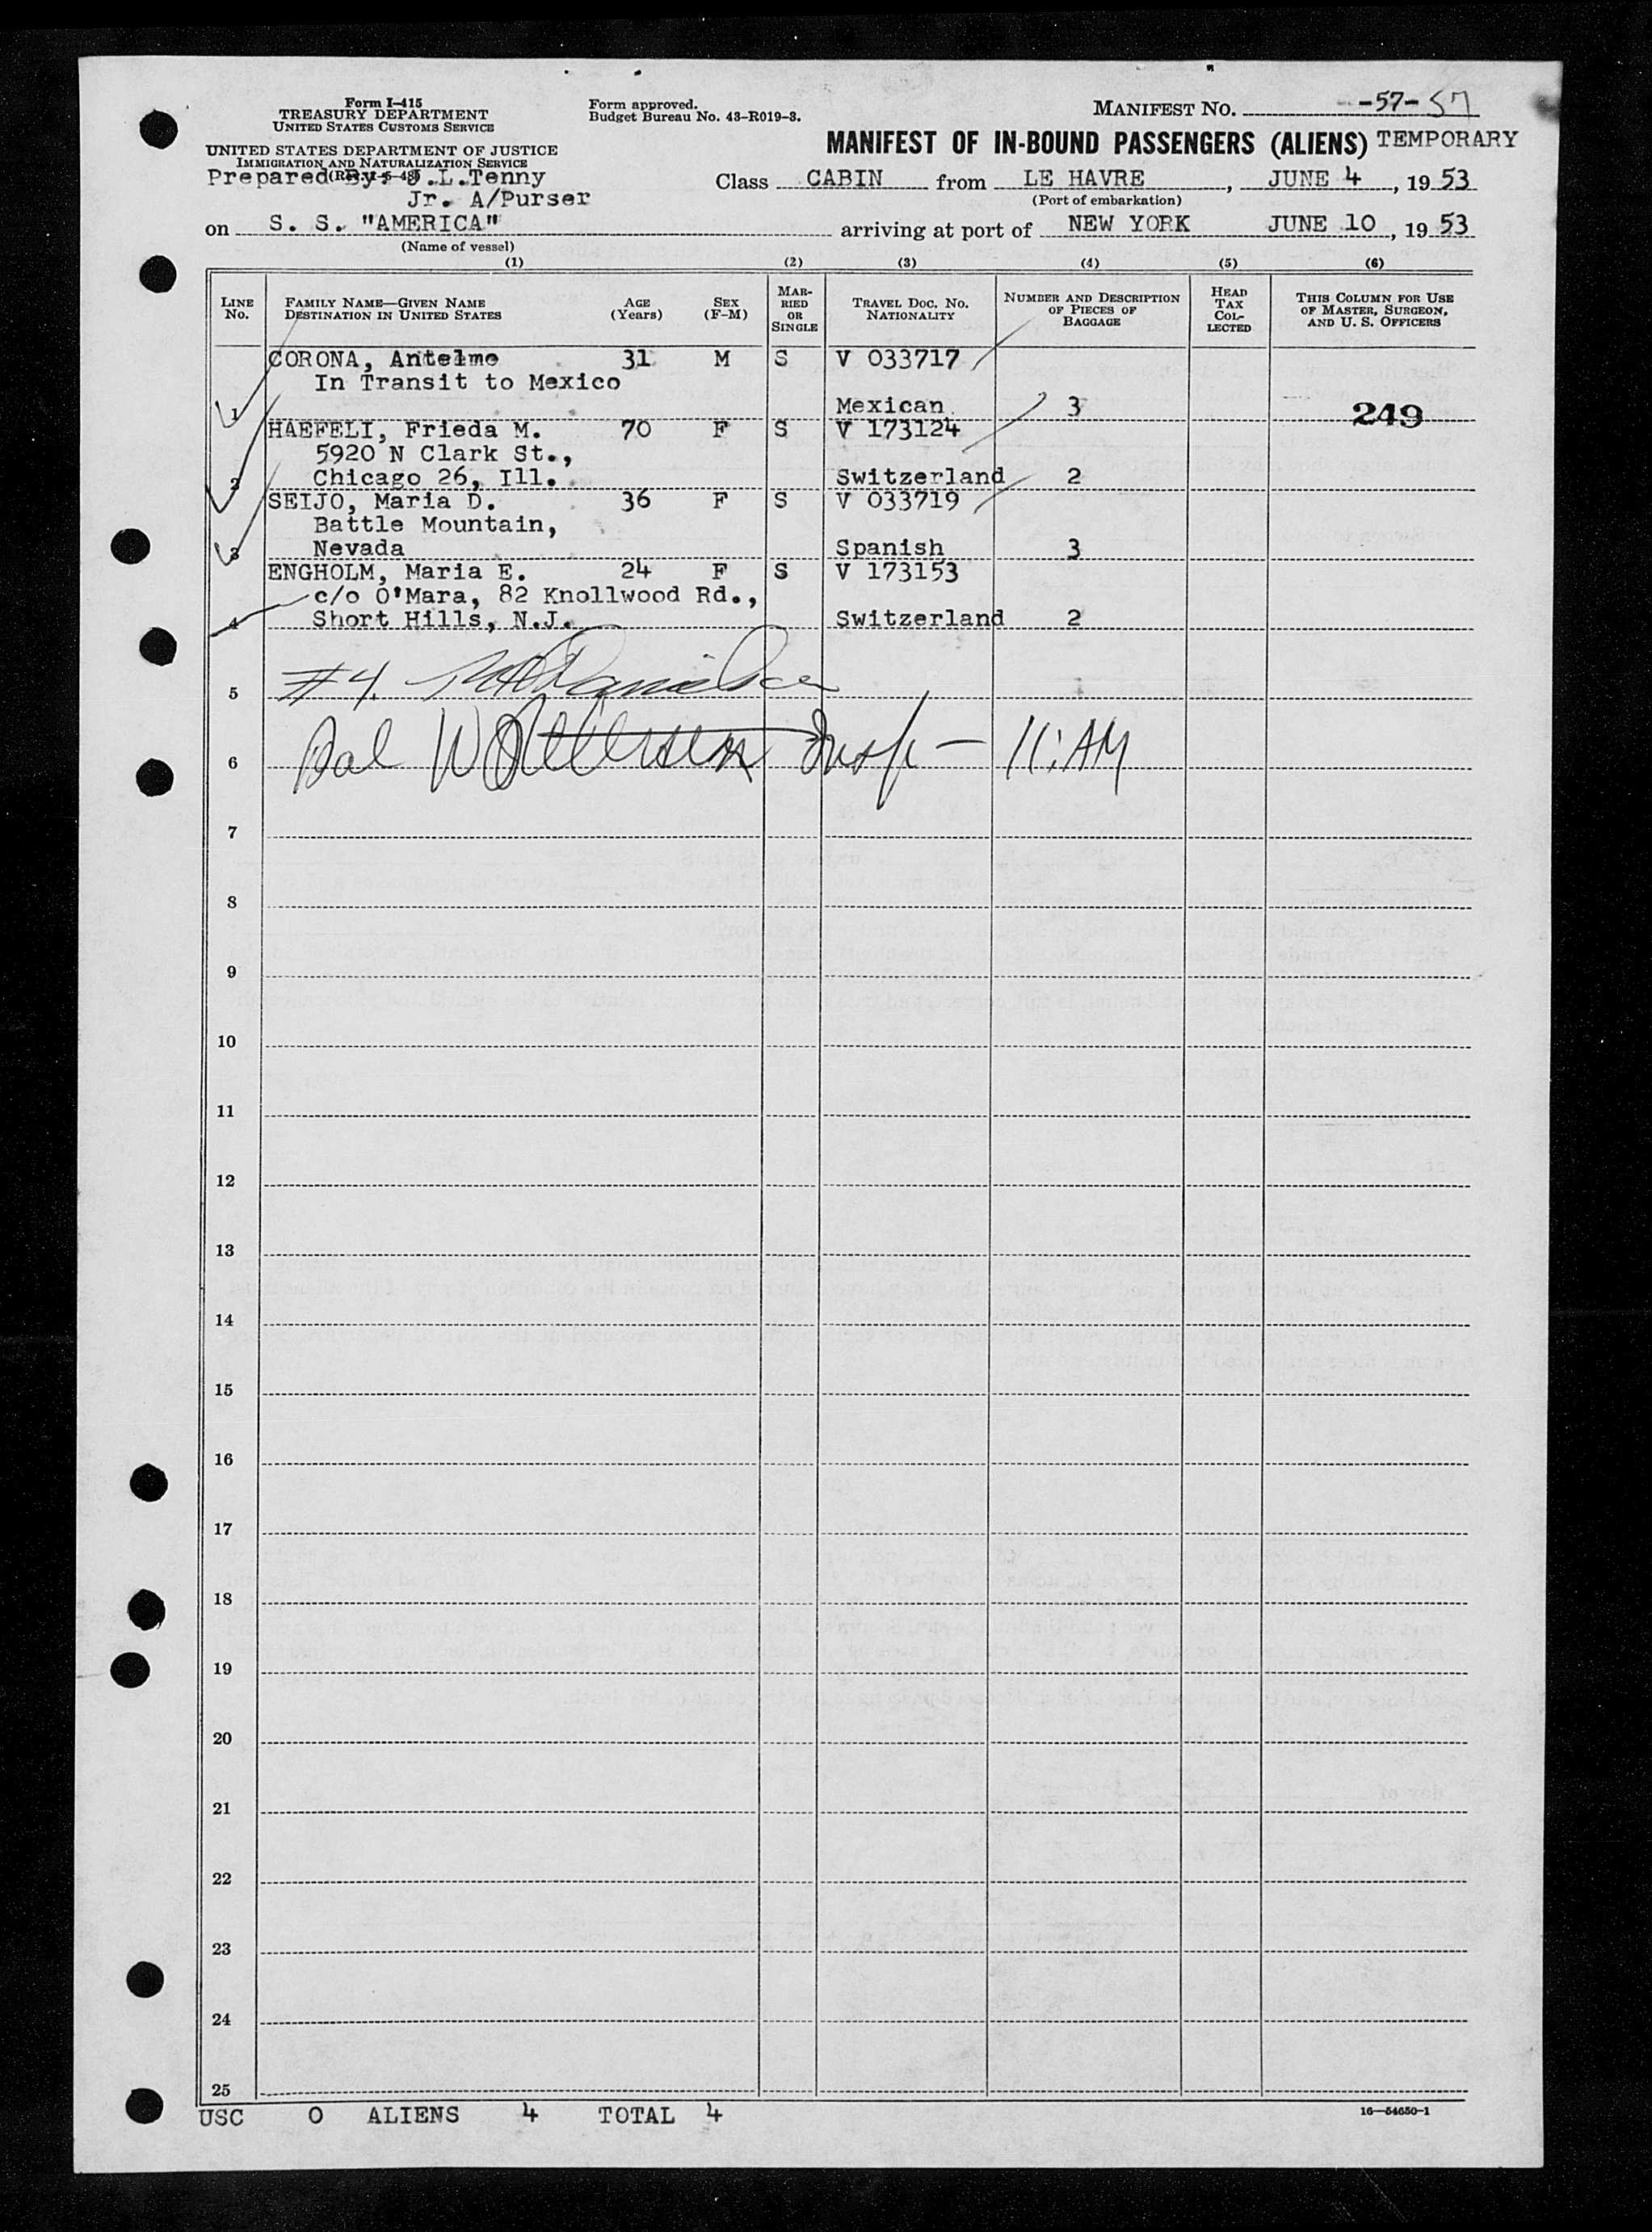 Form I-415
TREASURY DEPARTMENT
UNITED STATES CUSTOMS SERVICE
UNITED STATES DEPARTMENT OF JUSTICE
IMMIGRATION AND NATURALIZATION SERVICE
Prepared By: J.L.Tenny
Jr. A/Purser
Form approved.
Budget Bureau No. 43-R019-3.
MANIFEST NO. -57- 57
MANIFEST OF IN-BOUND PASSENGERS (ALIENS) TEMPORARY
Class CABIN from LE HAVRE, JUNE 4, 1953
(Port of embarkation)
on S. S. "AMERICA" arriving at port of NEW YORK JUNE 10, 1953
(Name of vessel)
(1) (2) (3) (4) (5) (6)
LINE No. FAMILY NAME—GIVEN NAME DESTINATION IN UNITED STATES AGE (Years) SEX (F-M) MARRIED OR SINGLE TRAVEL DOC. NO. NATIONALITY NUMBER AND DESCRIPTION OF PIECES OF BAGGAGE HEAD TAX COLLECTED THIS COLUMN FOR USE OF MASTER, SURGEON, AND U. S. OFFICERS
CORONA, Antelmo 31 M S V 033717
In Transit to Mexico
1 Mexican 3 249
HAEFELI, Frieda M. 70 F S V 173124
5920 N Clark St.,
2 Chicago 26, Ill. Switzerland 2
SEIJO, Maria D. 36 F S V 033719
Battle Mountain,
3 Nevada Spanish 3
ENGHOLM, Maria E. 24 F S V 173153
c/o O'Mara, 82 Knollwood Rd.,
4 Short Hills, N.J. Switzerland 2
5 #4
6 Insp — 11:AM
7
8
9
10
11
12
13
14
15
16
17
18
19
20
21
22
23
24
25
USC 0 ALIENS 4 TOTAL 4
16—54650-1